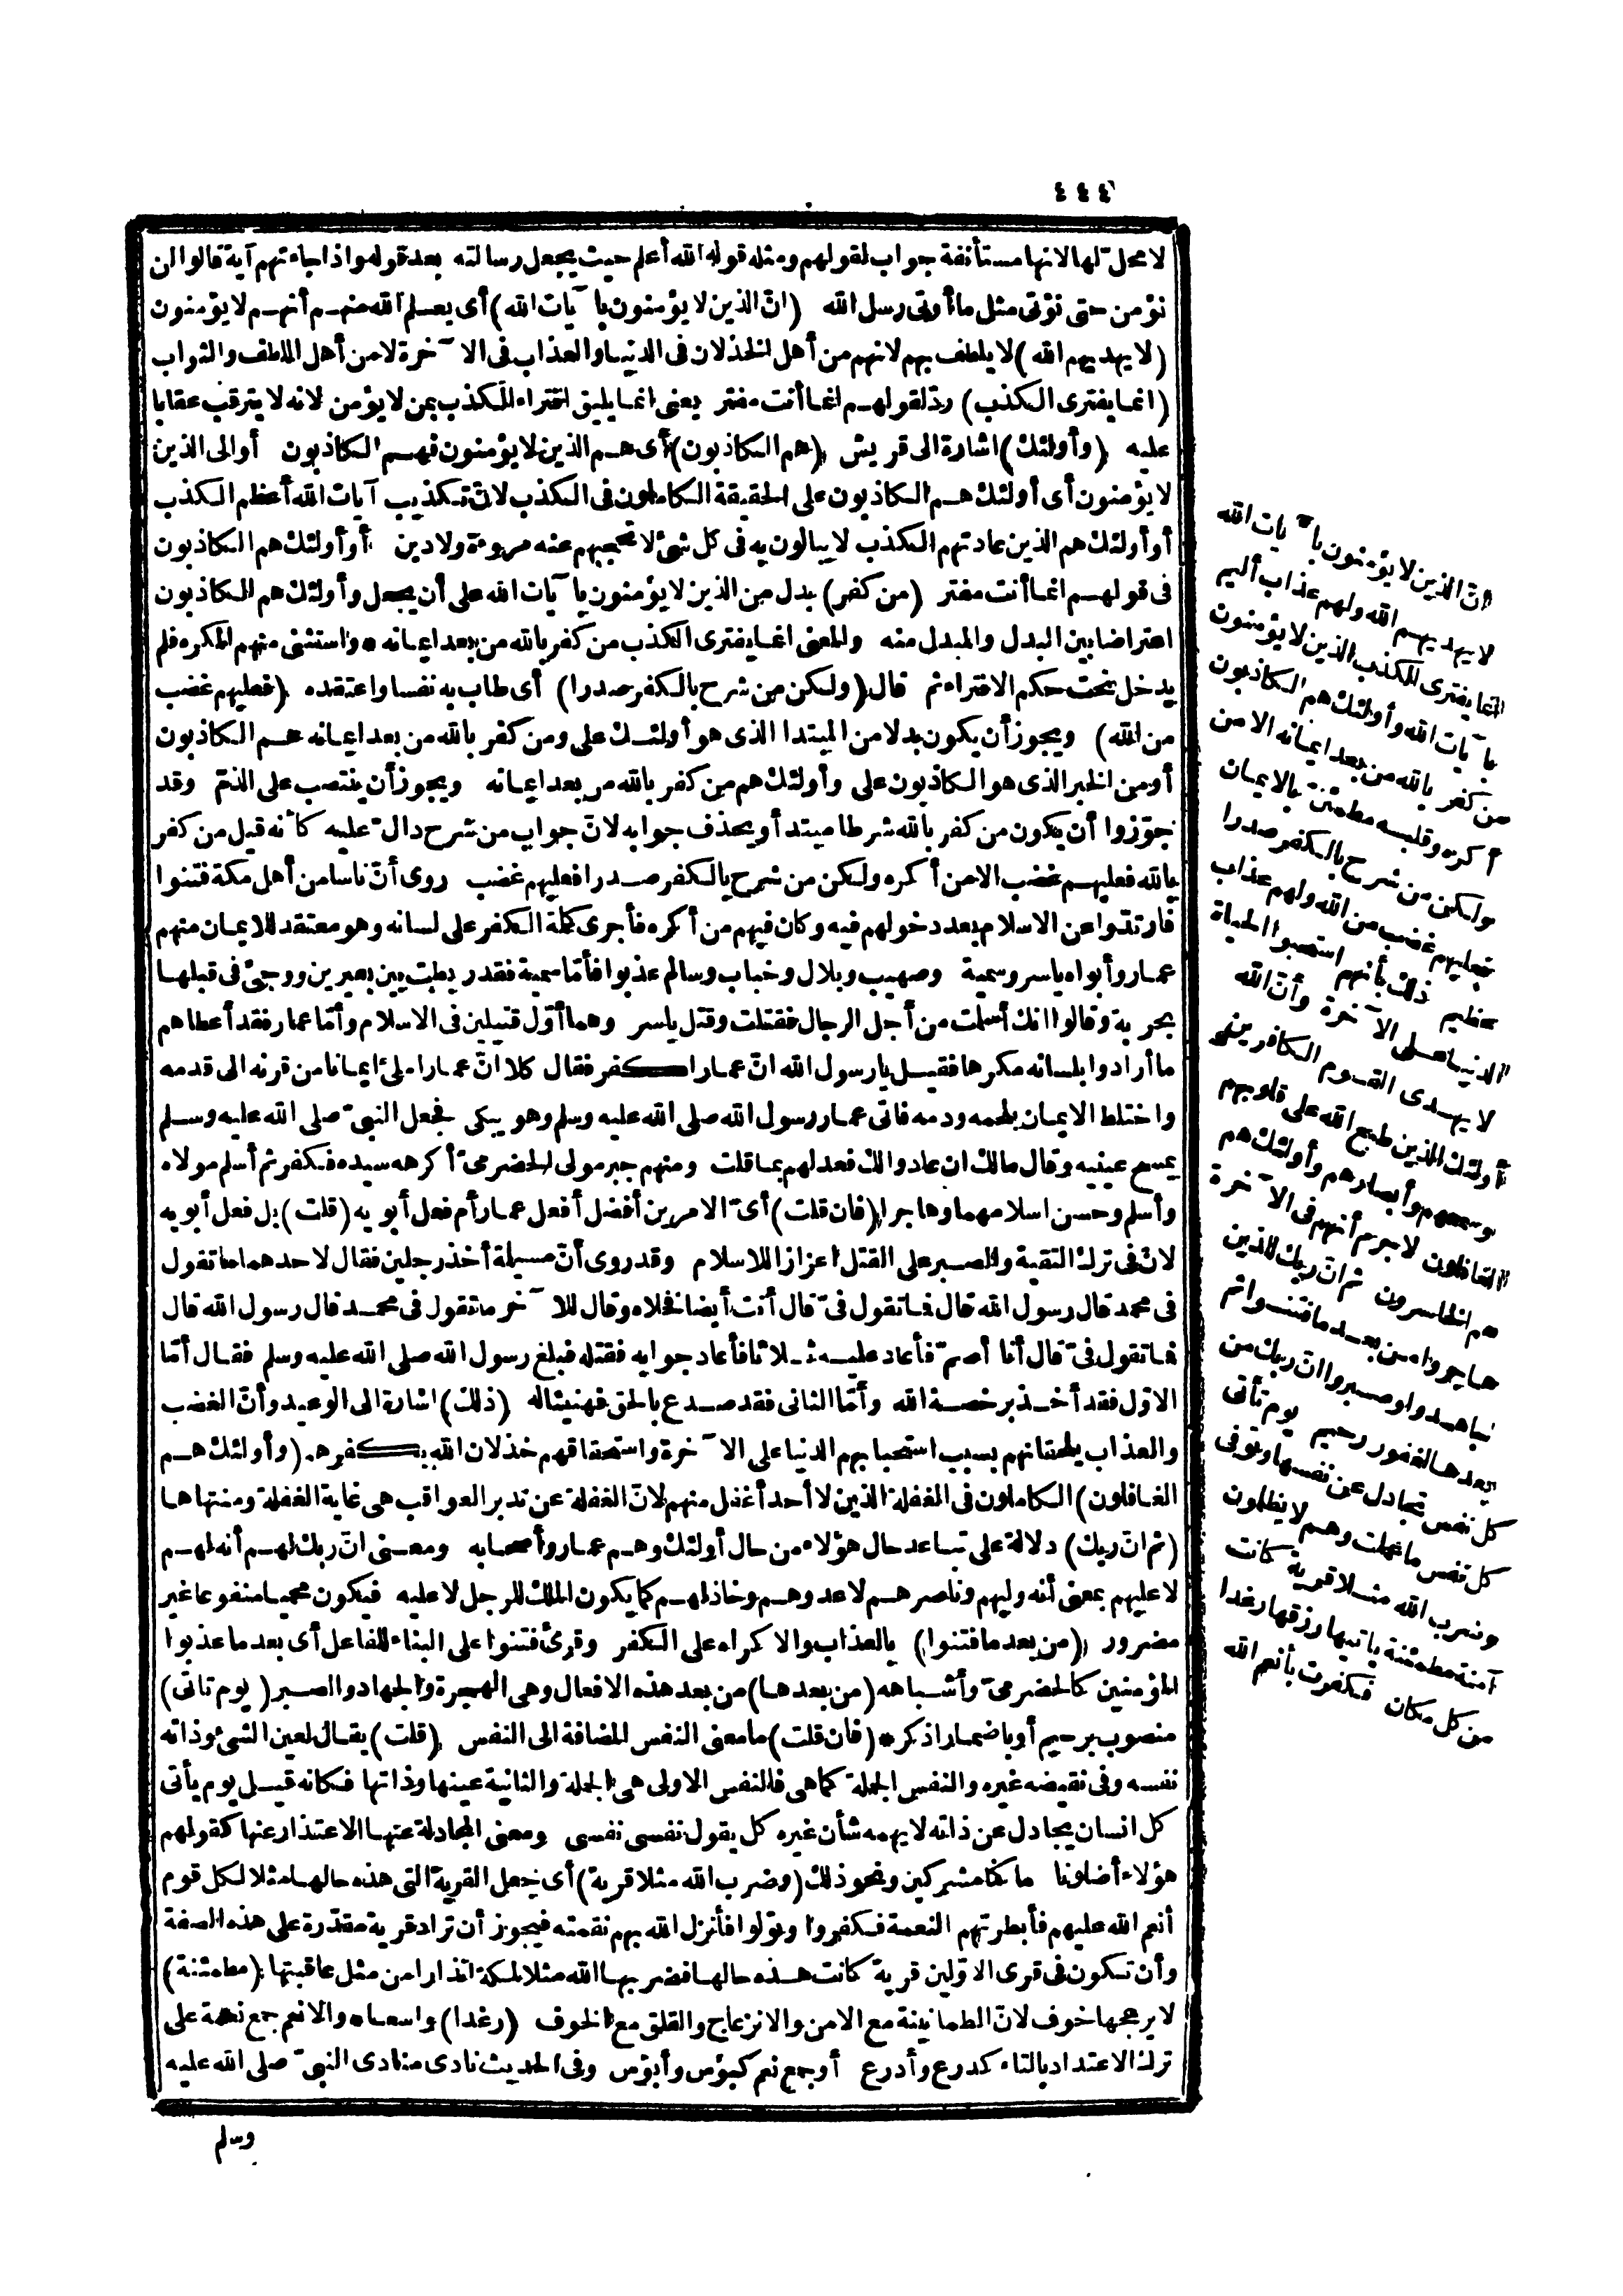 ٤٤٤
لا محل لها لانها مستأنفة جواب لقولهم ومثله قوله الله أعلم حيث يجعل رسالته بعد قوله واذا جاءتهم آية قالوا لن
نؤمن حتى نؤتى مثل ما أوتى رسل الله (انّ الذين لا يؤمنون بآيات الله) أى يعلم الله منهم أنهم لا يؤمنون
(لا يهديهم الله) لا يلطف بهم لانهم من أهل الخذلان فى الدنيا والعذاب فى الآخرة لا من أهل اللطف والثواب
(انما يفترى الكذب) ردّ لقولهم انما أنت مفتر يعنى انما يليق افتراء الكذب بمن لا يؤمن لانه لا يترقب عقابا
عليه (وأولئك) اشارة الى قريش (هم الكاذبون) أى هم الذين لا يؤمنون فهم الكاذبون أو الى الذين
لا يؤمنون أى أولئك هم الكاذبون على الحقيقة الكاملون فى الكذب لانّ تكذيب آيات الله أعظم الكذب
أو أولئك هم الذين عادتهم الكذب لا يبالون به فى كل شئ لا تحجبهم عنه مروءة ولا دين أو أولئك هم الكاذبون
فى قولهم انما أنت مفتر (من كفر) بدل من الذين لا يؤمنون بآيات الله على أن يجعل وأولئك هم الكاذبون
اعتراضا بين البدل والمبدل منه والمعنى انما يفترى الكذب من كفر بالله من بعد ايمانه * واستثنى منهم المكره فلم
يدخل تحت حكم الافتراء ثم قال (ولكن من شرح بالكفر صدرا) أى طاب به نفسا واعتقده (فعليهم غضب
من الله) ويجوز أن يكون بدلا من المبتدا الذى هو أولئك على ومن كفر بالله من بعد ايمانه هم الكاذبون
أو من الخبر الذى هو الكاذبون على وأولئك هم من كفر بالله من بعد ايمانه ويجوز أن ينتصب على الذمّ وقد
جوّزوا أن يكون من كفر بالله شرطا مبتدأ ويحذف جوابه لانّ جواب من شرح دالّ عليه كأنه قيل من كفر
بالله فعليهم غضب الا من أكره ولكن من شرح بالكفر صدرا فعليهم غضب روى أنّ ناسا من أهل مكة فتنوا
فارتدّوا عن الاسلام بعد دخولهم فيه وكان فيهم من أكره فأجرى كلمة الكفر على لسانه وهو معتقد للايمان منهم
عمار وأبواه ياسر وسمية وصهيب وبلال وخباب وسالم عذبوا فأمّا سمية فقد ربطت بين بعيرين ووجئ فى قبلها
بحربة وقالوا انك أسلمت من أجل الرجال فقتلت وقتل ياسر وهما أوّل قتيلين فى الاسلام وأمّا عمار فقد أعطاهم
ما أرادوا بلسانه مكرها فقيل يا رسول الله انّ عمارا كفر فقال كلا انّ عمارا ملئ ايمانا من قرنه الى قدمه
واختلط الايمان بلحمه ودمه فاتى عمار رسول الله صلى الله عليه وسلم وهو يبكى فجعل النبىّ صلى الله عليه وسلم
يمسح عينيه وقال مالك ان عادوا لك فعد لهم بما قلت ومنهم جبر مولى الحضرمىّ أكرهه سيده فكفر ثم أسلم مولاه
وأسلم وحسن اسلامهما وهاجرا (فان قلت) أىّ الامرين أفضل أفعل عمار أم فعل أبويه (قلت) بل فعل أبويه
لانّ فى ترك التقية والصبر على القتل اعزازا للاسلام وقد روى أنّ مسيلمة أخذ رجلين فقال لاحدهما ما تقول
فى محمد قال رسول الله قال فما تقول فىّ قال أنت أيضا فخلاه وقال للآخر ما تقول فى محمد قال رسول الله قال
فما تقول فىّ قال أنا أصمّ فأعاد عليه ثلاثا فأعاد جوابه فقتله فبلغ رسول الله صلى الله عليه وسلم فقال أمّا
الاوّل فقد أخذ برخصة الله وأمّا الثانى فقد صدع بالحق فهنيئا له (ذلك) اشارة الى الوعيد وأنّ الغضب
والعذاب يلحقانهم بسبب استحبابهم الدنيا على الآخرة واستحقاقهم خذلان الله بكفرهم (وأولئك هم
الغافلون) الكاملون فى الغفلة الذين لا أحد أغفل منهم لانّ الغفلة عن تدبر العواقب هى غاية الغفلة ومنتهاها
(ثم انّ ربك) دلالة على تباعد حال هؤلاء من حال أولئك وهم عمار وأصحابه ومعنى انّ ربك لهم أنه لهم
لا عليهم بمعنى أنه وليهم وناصرهم لا عدوهم وخاذلهم كما يكون الملك للرجل لا عليه فيكون محميا منفوعا غير
مضرور (من بعد ما فتنوا) بالعذاب والاكراه على الكفر وقرئ فتنوا على البناء للفاعل أى بعد ما عذبوا
المؤمنين كالحضرمىّ وأشباهه (من بعدها) من بعد هذه الافعال وهى الهجرة والجهاد والصبر (يوم تاتى)
منصوب برحيم أو باضمار اذكر * (فان قلت) ما معنى النفس المضافة الى النفس (قلت) يقال لعين الشئ وذاته
نفسه وفى نقيضه غيره والنفس الجملة كما هى فالنفس الاولى هى الجملة والثانية عينها وذاتها فكانه قيل يوم يأتى
كل انسان يجادل عن ذاته لا يهمه شأن غيره كل يقول نفسى نفسى ومعنى المجادلة عنها الاعتذار عنها كقولهم
هؤلاء أضلونا ما كنا مشركين ونحو ذلك (وضرب الله مثلا قرية) أى جعل القرية التى هذه حالها مثلا لكل قوم
أنعم الله عليهم فأبطرتهم النعمة فكفروا وتولوا فأنزل الله بهم نقمته فيجوز أن تراد قرية مقدّرة على هذه الصفة
وأن تكون فى قرى الاوّلين قرية كانت هذه حالها فضربها الله مثلا لمكة انذارا من مثل عاقبتها (مطمئنة)
لا يزعجها خوف لانّ الطمانينة مع الامن والانزعاج والقلق مع الخوف (رغدا) واسعا * والانعم جمع نعمة على
ترك الاعتداد بالتاء كدرع وأدرع أو جمع نعم كبؤس وأبؤس وفى الحديث نادى منادى النبىّ صلى الله عليه
وسلم
انّ الذين لا يؤمنون بآيات الله
لا يهديهم الله ولهم عذاب أليم
انما يفترى الكذب الذين لا يؤمنون
بآيات الله وأولئك هم الكاذبون
من كفر بالله من بعد ايمانه الا من
أكره وقلبه مطمئنّ بالايمان
ولكن من شرح بالكفر صدرا
فعليهم غضب من الله ولهم عذاب
عظيم ذلك بأنهم استحبوا الحياة
الدنيا على الآخرة وأنّ الله
لا يهدى القوم الكافرين
أولئك الذين طبع الله على قلوبهم
وسمعهم وأبصارهم وأولئك هم
الغافلون لا جرم أنهم فى الآخرة
هم الخاسرون ثم انّ ربك للذين
هاجروا من بعد ما فتنوا ثم
جاهدوا وصبروا انّ ربك من
بعدها لغفور رحيم يوم تأتى
كل نفس تجادل عن نفسها وتوفى
كل نفس ما عملت وهم لا يظلمون
وضرب الله مثلا قرية كانت
آمنة مطمئنة يأتيها رزقها رغدا
من كل مكان فكفرت بأنعم الله